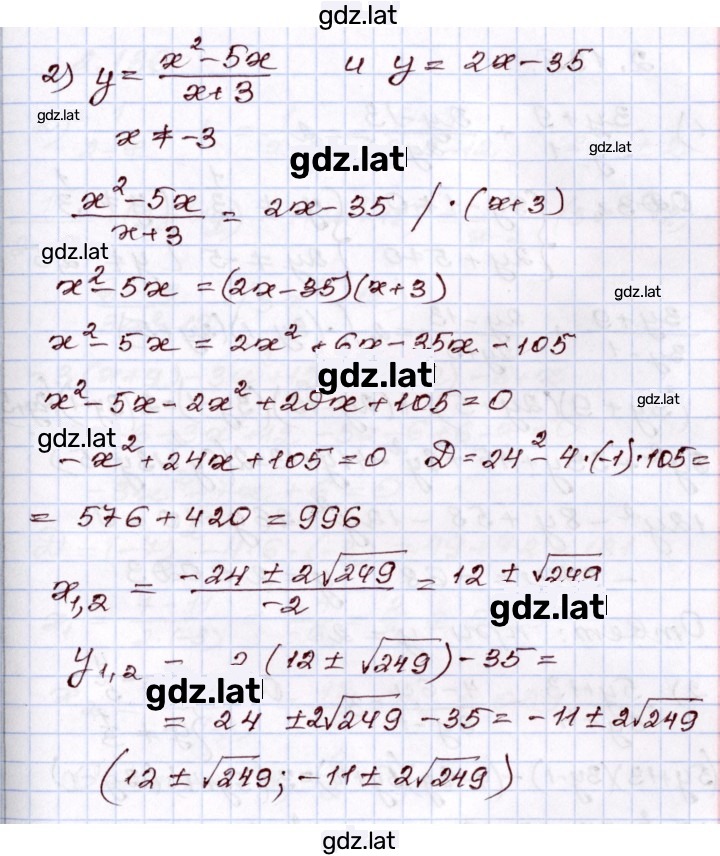 gdz.lat
2) y = (x² - 5x)/(x + 3) и y = 2x - 35
gdz.lat
x ≠ -3
gdz.lat
gdz.lat
(x² - 5x)/(x + 3) = 2x - 35 / · (x + 3)
gdz.lat
x² - 5x = (2x - 35)(x + 3)
gdz.lat
x² - 5x = 2x² + 6x - 35x - 105
gdz.lat
x² - 5x - 2x² + 29x + 105 = 0
gdz.lat
gdz.lat
-x² + 24x + 105 = 0 D = 24² - 4 · (-1) · 105 =
= 576 + 420 = 996
x₁,₂ = (-24 ± 2√249)/(-2) = 12 ± √249
gdz.lat
y₁,₂ = 2 (12 ± √249) - 35 =
gdz.lat
= 24 ± 2√249 - 35 = -11 ± 2√249
(12 ± √249; -11 ± 2√249)
gdz.lat